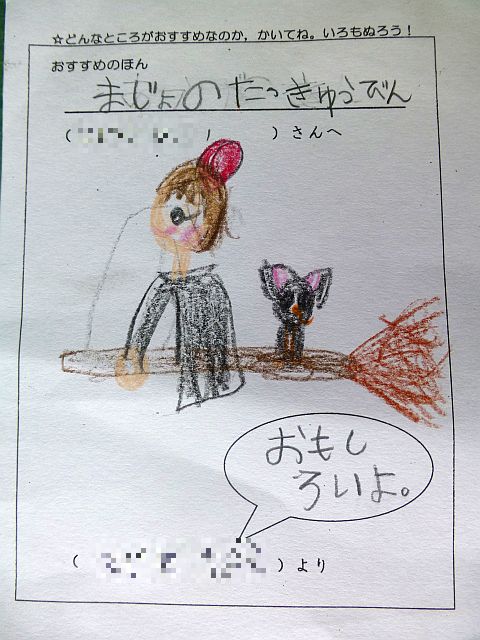 ☆どんなところがおすすめなのか，かいてね。いろもぬろう！
おすすめのほん
まじょのたっきゅうびん
（　　　　　）さんへ
おもし
ろいよ。
（　　　　　）より